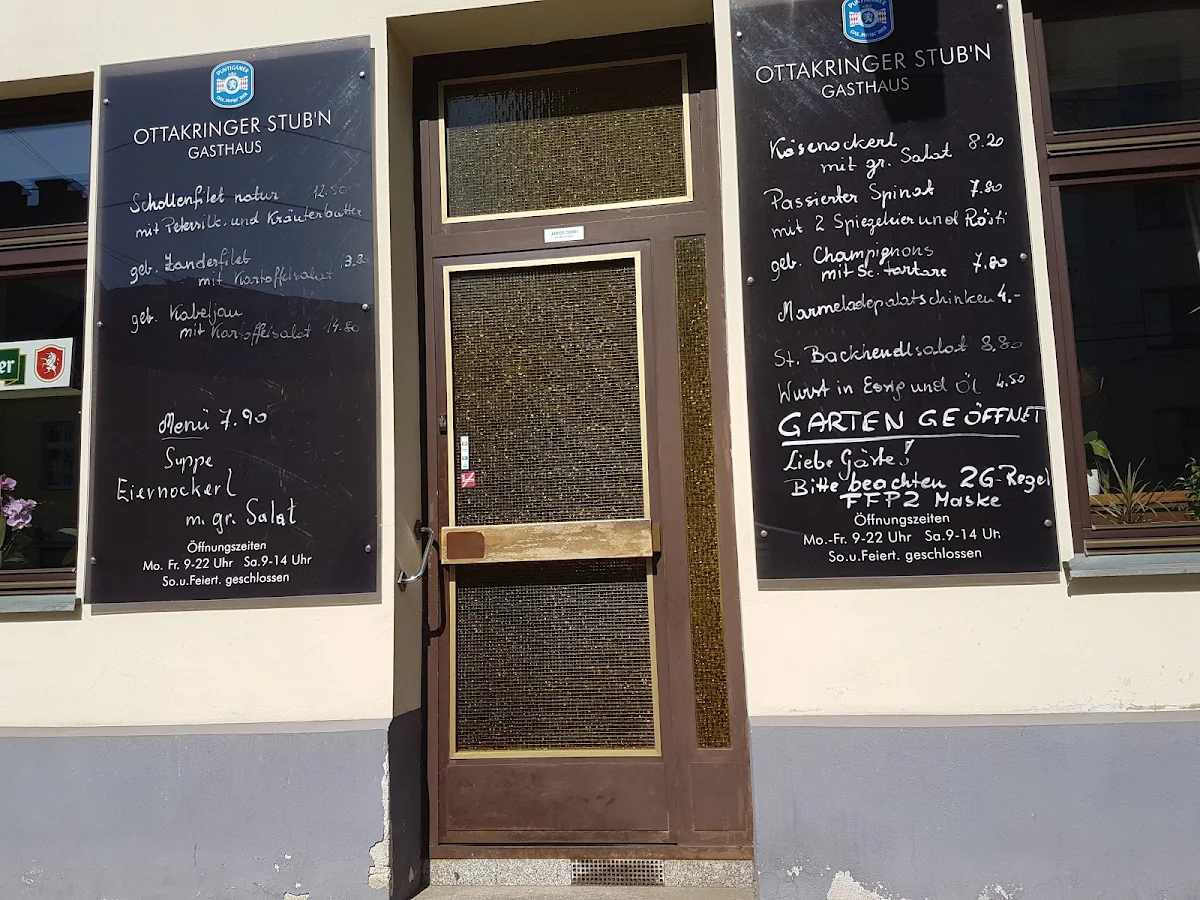 PUNTIGAMER
OTTAKRINGER STUB'N
GASTHAUS
Schollenfilet natur 12.50
mit Petersil. und Kräuterbutter
geb. Zanderfilet
mit Kartoffelsalat 13.80
geb. Kabeljau
mit Kartoffelsalat 14.80
Menü 7.90
Suppe
Eiernockerl
m. gr. Salat
Öffnungszeiten
Mo. Fr. 9-22 Uhr Sa.9-14 Uhr
So.u.Feiert. geschlossen
er
PUNTIGAMER
OTTAKRINGER STUB'N
GASTHAUS
Käsenockerl
mit gr. Salat 8.20
Passierter Spinat 7.80
mit 2 Spiegeleier und Rösti
geb. Champignons
mit Sc. tartare 7.80
Marmeladepalatschinken 4.-
St. Backhendlsalat 8.80
Wurst in Essig und Öl 4.50
GARTEN GEÖFFNET
Liebe Gäste!
Bitte beachten 2G-Regel
FFP2 Maske
Öffnungszeiten
Mo.-Fr. 9-22 Uhr Sa.9-14 Uhr
So.u.Feiert. geschlossen